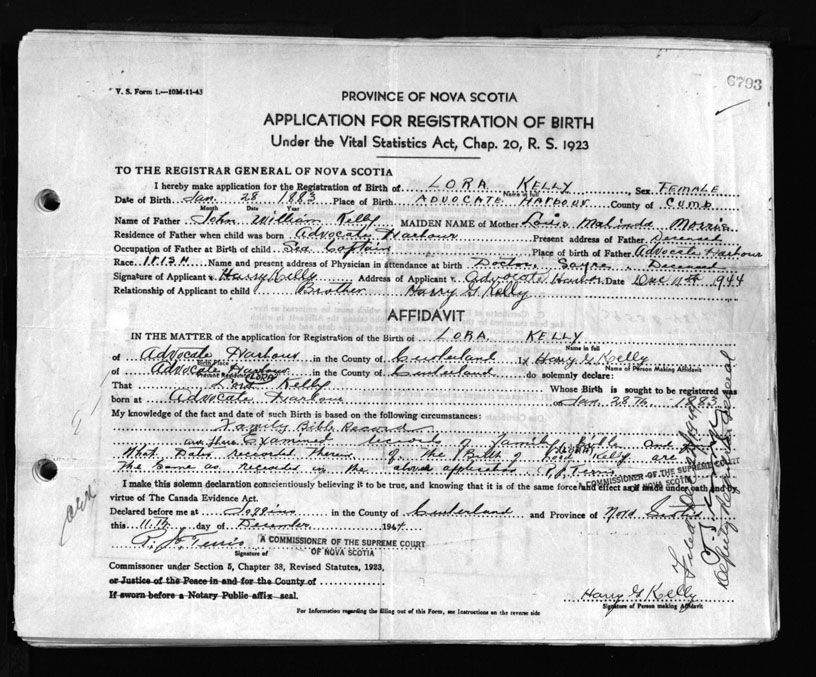 6793
V. S. Form 1.—10M-11-43
PROVINCE OF NOVA SCOTIA
APPLICATION FOR REGISTRATION OF BIRTH
Under the Vital Statistics Act, Chap. 20, R. S. 1923
TO THE REGISTRAR GENERAL OF NOVA SCOTIA
I hereby make application for the Registration of Birth of LORA KELLY, Sex FEMALE
Name in full
Date of Birth Jan. 28 1883 Place of Birth ADVOCATE HARBOUR County of CUMB
Month Date Year
Name of Father John William Kelly MAIDEN NAME of Mother Malinda Morris
Residence of Father when child was born Advocate Harbour Present address of Father
Occupation of Father at Birth of child Sea Captain Place of birth of Father Advocate Harbour
Race IRISH Name and present address of Physician in attendance at birth Doctor Deceased
Signature of Applicant Harry Kelly Address of Applicant Advocate Harbour Date Dec 11th 1944
Relationship of Applicant to child Brother Harry G Kelly
AFFIDAVIT
IN THE MATTER of the application for Registration of the Birth of LORA KELLY
Name in full
of Advocate Harbour in the County of Cumberland I, Harry G Kelly
Birth Place Name of Person Making Affidavit
of Advocate Harbour in the County of Cumberland do solemnly declare:
Present Residence
LORA
That Lora Kelly Whose Birth is sought to be registered was
born at Advocate Harbour on Jan. 28th 1883
My knowledge of the fact and date of such Birth is based on the following circumstances:
Family Bible Records
Examined records of Family Bible and
What Date recorded therein of the Birth of Lora Kelly are
(LORA)
the same as recorded in the above application
A COMMISSIONER OF THE SUPREME COURT
OF NOVA SCOTIA
I make this solemn declaration conscientiously believing it to be true, and knowing that it is of the same force and effect as if made under oath and by
virtue of The Canada Evidence Act.
Declared before me at Joggins in the County of Cumberland and Province of Nova Scotia
this 11th day of December, 1944
A COMMISSIONER OF THE SUPREME COURT
OF NOVA SCOTIA
Signature of
Commissioner under Section 5, Chapter 38, Revised Statutes, 1923,
or Justice of the Peace in and for the County of
If sworn before a Notary Public affix seal.
Harry G Kelly
Signature of Person making Affidavit
For Information regarding the filling out of this Form, see Instructions on the reverse side
Deputy Registrar General